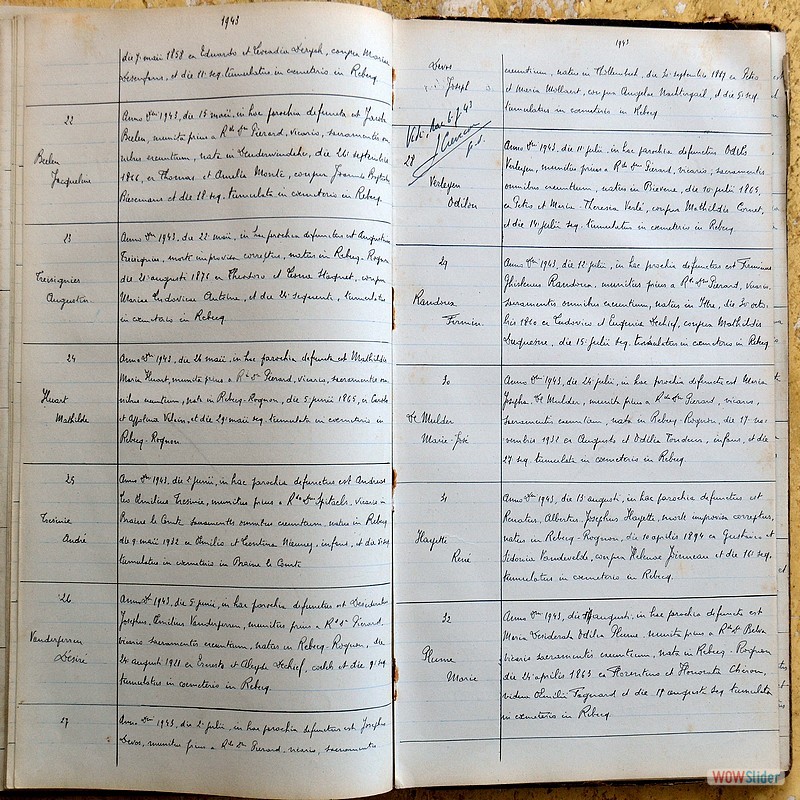 1943
die 7 maii 1858 ex Eduardo et Leocadia
et die 11 seq. tumulatus in cemeterio in Rebecq.
22
Beelen
Jacqueline
Anno Dni 1943, die 15 maii, in hac parochia defuncta est Jacoba
Beelen, munita prius a Rdo Dno Pierard, vicario, sacramentis om
nibus exeuntium, nata in die 26 septembris
1866, ex Thomas et Amelia conjux Joannis Baptistae
et die 18 seq. tumulata in cemeterio in Rebecq.
23
Tresignies
Augustin
Anno Dni 1943, die 22 maii, in hac parochia defunctus est Augustinus
Tresignies, morte improvisa correptus, natus in Rebecq-Rognon
die 21 augusti 1871 ex Theodoro et Hacquet, conjux
Mariae Ludovicae Antoine, et die 24 sequenti, tumulatus
in cemeterio in Rebecq.
24
Huart
Mathilde
Anno Dni 1943, die 26 maii, in hac parochia defuncta est Mathildis
Maria Huart, munita prius a Rdo Dno Pierard, vicario, sacramentis om
nibus exeuntium, nata in Rebecq-Rognon, die 5 junii 1865, ex Carolo
et Appolina et die 29 maii seq. tumulata in cemeterio in
Rebecq-Rognon.
25
Tresinie
André
Anno Dni 1943, die 2 junii, in hac parochia defunctus est Andreas
Leo Emilius Tresinie, munitus prius a Rdo Dno Spitaels, vicario in
Braine le Comte sacramentis omnibus exeuntium, natus in Rebecq
die 9 maii 1932 ex Emilio et Leontina infans, et die 5 seq.
tumulatus in cemeterio in Braine le Comte
26
Vanderperren
Désiré
Anno Dni 1943, die 5 junii, in hac parochia defunctus est Desideratus
Josephus Emilius Vanderperren, munitus prius a Rdo Dno Pierard
vicario sacramentis exeuntium, natus in Rebecq-Rognon, die
24 augusti 1921 ex Ernesto et Aleyde Dechief, coelebs et die 9 seq.
tumulatus in cemeterio in Rebecq.
27
Anno Dni 1943, die 2 julii, in hac parochia defunctus est Josephus
Devos, munitus prius a Rdo Dno Pierard, vicario, sacramentis
1943
Devos
Joseph
exeuntium, natus in die 30 septembris 1869 ex Petro
et Maria Mollaert, conjux Angelae Nachtergael, et die 5 seq.
tumulatus in cemeterio in Rebecq
28
Verleyen
Odilon
Anno Dni 1943, die 11 julii, in hac parochia defunctus Odilo
Verleyen, munitus prius a Rdo Dno Pierard, vicario, sacramentis
omnibus exeuntium, natus in Bievene, die 10 julii 1863,
ex Petro et Maria Theresia conjux Mathildis Cornet,
et die 14 julii seq. tumulatus in cemeterio in Rebecq.
29
Randoux
Firmin
Anno Dni 1943, die 12 julii, in hac parochia defunctus est Firminus
Ghislenus Randoux, munitus prius a Rdo Dno Pierard, vicario
sacramentis omnibus exeuntium, natus in Ittre, die 30 octo
bris 1860 ex Ludovico et Eugenia Dechief, conjux Mathildis
Duquesne, die 15 julii seq. tumulatus in cemeterio in Rebecq.
30
De Mulder
Marie-José
Anno Dni 1943, die 24 julii, in hac parochia defuncta est Maria
Josepha De Mulder, munita prius a Rdo Dno Pierard, vicario,
sacramentis exeuntium, nata in Rebecq-Rognon, die 17 no
vembris 1932 ex Augusto et Odilia Tondeur, infans, et die
27 seq. tumulata in cemeterio in Rebecq.
31
Hayette
René
Anno Dni 1943, die 13 augusti, in hac parochia defunctus est
Renatus, Albertus Josephus Hayette, morte improvisa correptus,
natus in Rebecq-Rognon, die 10 aprilis 1894 ex Gustavo et
Sidonia Vandevelde, conjux Helenae et die 16 seq.
tumulatus in cemeterio in Rebecq.
32
Plume
Marie
Anno Dni 1943, die augusti, in hac parochia defuncta est
Maria Desiderata Odilia Plume, munita prius a Rdo Dno
vicario sacramentis exeuntium, nata in Rebecq-Rognon
die 24 aprilis 1863 ex Florentino et Honorata
vidua Emilii et die 19 augusti seq. tumulata
in cemeterio in Rebecq.
WOWSlider